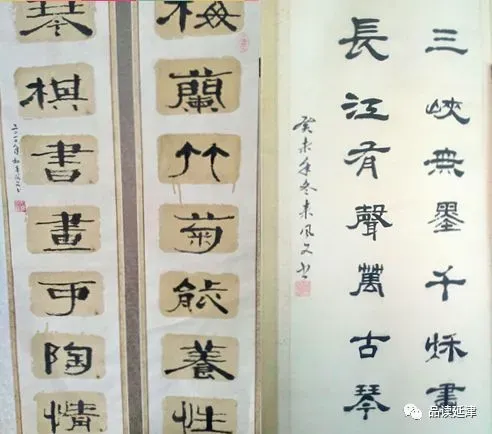 三峽無墨千秌畫
長江有聲萬古琴
癸未年冬
梅蘭竹菊能養性
琴棋書畫可陶情
品读延津